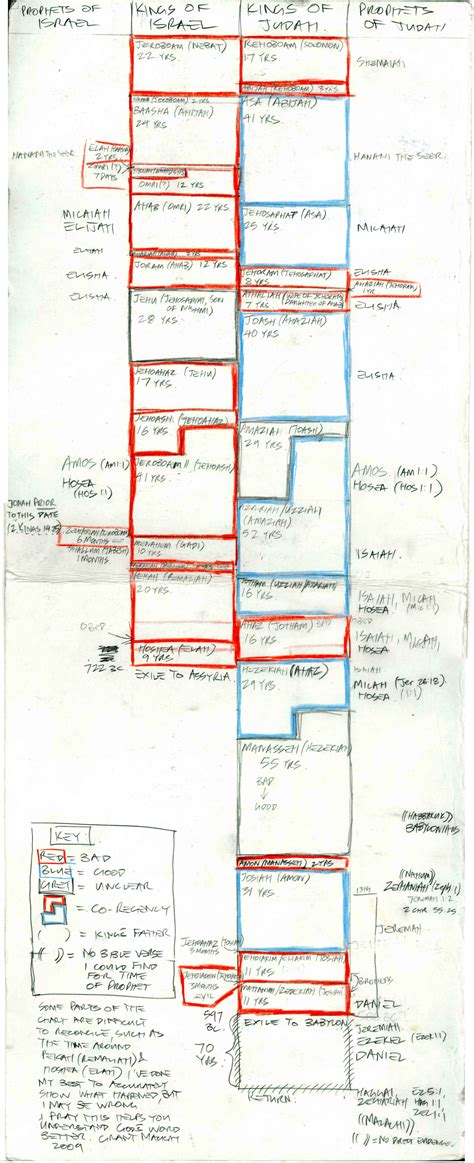 PROPHETS OF ISRAEL
KINGS OF ISRAEL
KINGS OF JUDAH
PROPHETS OF JUDAH
JEROBOAM (NEBAT)
22 YRS.
REHOBOAM (SOLOMON)
17 YRS.
SHEMAIAH
ABIJAH (REHOBOAM) 3 YRS
NADAB (JEROBOAM) 2 YRS.
BAASHA (AHIJAH)
24 YRS.
ASA (ABIJAH)
41 YRS.
HANANI THE SEER
ELAH (BAASHA)
2 YRS.
ZIMRI (?)
7 DAYS
OMRI (?) 12 YRS
HANANI THE SEER.
AHAB (OMRI) 22 YRS
MICAIAH
ELIJAH
JEHOSAPHAT (ASA)
25 YRS.
MICAIAH
ELIJAH
ELISHA
JORAM (AHAB) 12 YRS.
JEHORAM (JEHOSAPHAT)
8 YRS.
ELISHA
AHAZIAH (JEHORAM)
1 YR
ELISHA
JEHU (JEHOSAPHAT, SON OF NIMSHI)
28 YRS.
ATHALIAH (WIFE OF JEHORAM, DAUGHTER OF AHAB)
7 YRS
ELISHA
JOASH (AHAZIAH)
40 YRS
JEHOAHAZ (JEHU)
17 YRS.
ELISHA.
JEHOASH (JEHOAHAZ)
16 YRS.
AMAZIAH (JOASH)
29 YRS.
AMOS (AM 1:1)
HOSEA
(HOS 1:1)
JEROBOAM II (JEHOASH)
41 YRS.
AMOS. (AM 1:1)
HOSEA (HOS 1:1)
JONAH PRIOR
TO THIS DATE
(2 KINGS 14:25)
AZARIAH/UZZIAH
(AMAZIAH)
52 YRS.
ZECHARIAH (JEROBOAM)
6 MONTHS
SHALLUM (JABESH)
1 MONTHS
MENAHEM (GADI)
10 YRS
ISAIAH.
PEKAH (REMALIAH)
20 YRS.
JOTHAM (UZZIAH/AZARIAH)
16 YRS.
ISAIAH, MICAH
HOSEA
OBED
AHAZ (JOTHAM)
16 YRS.
ISAIAH, MICAH
HOSEA
HOSHEA (ELAH)
9 YRS.
722 BC
EXILE TO ASSYRIA.
HEZEKIAH (AHAZ)
29 YRS.
ISAIAH
MICAH (Jer 26:18)
HOSEA (1:1)
MANASSEH (HEZEKIAH)
55 YRS.
BAD
↓
GOOD
((HABAKKUK))
BABYLONIANS
KEY:
RED = BAD
BLUE = GOOD
GREY = UNCLEAR
= CO-REGENCY
( ) = KING'S FATHER
(( )) = NO BIBLE VERSE
I COULD FIND
FOR TIME
OF PROPHET
AMON (MANASSEH) 2 YRS
JOSIAH (AMON)
31 YRS.
((NAHUM))
ZEPHANIAH/Zeph 1:1
13th
JEREMIAH 1:2
2 CHR 35:25
JEREMIAH.
JEHOAHAZ (JOSIAH)
3 MONTHS
JEHOIAKIM/ELIAKIM (JOSIAH)
11 YRS.
3 MONTHS
EVIL
MATTANIAH/ZEDEKIAH (JOSIAH)
11 YRS
BROTHERS
DANIEL
SOME PARTS OF THE
CHART ARE DIFFICULT
TO RECONCILE, SUCH AS
THE TIME AROUND
PEKAH (REMALIAH) &
HOSHEA (ELAH) I'VE DONE
MY BEST TO ACCURATELY
SHOW WHAT HAPPENED BUT
I MAY BE WRONG
I PRAY THIS HELPS YOU
UNDERSTAND GOD'S WORD
BETTER. GRANT
2009
597
BC.
EXILE TO BABYLON
70
YRS.
JEREMIAH.
EZEKIEL
DANIEL
RETURN.
HAGGAI,
ZECHARIAH
EZ 5:1
HAG 1:1
ZEC 1:1
((MALACHI))
(( )) = NO DIRECT EVIDENCE.